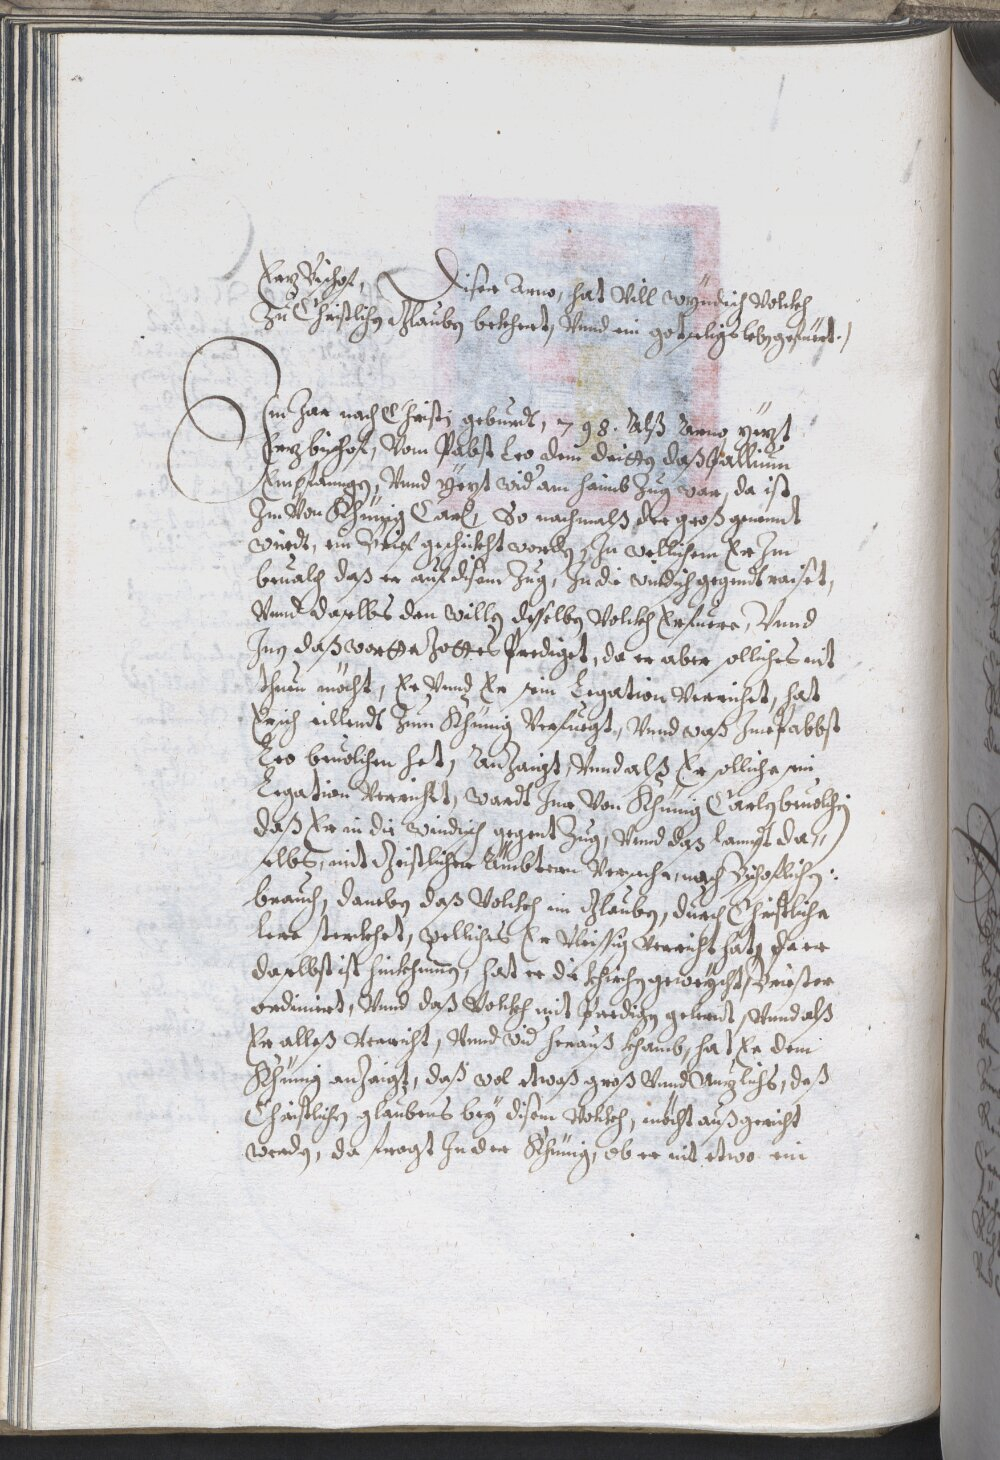 Erz Bischof, Diser Arno, hat Vill Wündisch Volckh
Zu Christlichen Glauben bekhert, Vnnd ein gotseligs leben gefüert.
Im Jar nach Christi geburdt, 798. Alß Arno yezt
Erzbischof, Vom Pabst Leo dem dritten daß Pallium
Empfanngen, Vnnd yezt wid am haimb Zug war, da ist
Im Von Khünig Carl, So nachmalß der groß genennt
wirdt, ein Brief geschickht worden, In wellichem Er Im
beualch daß er auf disem Zug, In die windisch gegendt raiset,
Vnnd daselbs den willen desselben Volckh Erfuere, Vnnd
Inen daß wortte Gottes Prediget, da er aber solliches nit
thuen möcht, Er Vnnd Er sein Legation Verrichtet, hat
Er sich eillendt Zum Khünig Verfuegt, Vnnd waß Ime Pabbst
Leo beuolchen het, Anzaigt, Vnnd alß Er solliche sein
Legation Verricht, wardt Ime Von Khünig Carl beuolchen
daß Er in die windisch gegent Zug, Vnnd daß Lanndt da"
selbs, mit Geistlichen Ämbtern Versehe, nach Bischoflichen
brauch, daneben daß Volckh im Glauben, durch Christliche
lere sterckhet, welliches Er Vleissig Verricht hat, da er
daselbst ist hinkhumen, hat er die khirchen geweycht, Briester
ordiniert, Vnnd daß Volckh mit Predigen gelerdt, Vnnd alß
Er alleß Verricht, Vnnd wid herauß khamb, hat Er dem
Khünig anzaigt, daß wol etwaß groß Vnnd Nuzlichs, deß
Christlichen glaubens bey disem Volckh, möcht außgericht
werden, da fragt In der Khünig, ob er nit etwo ein